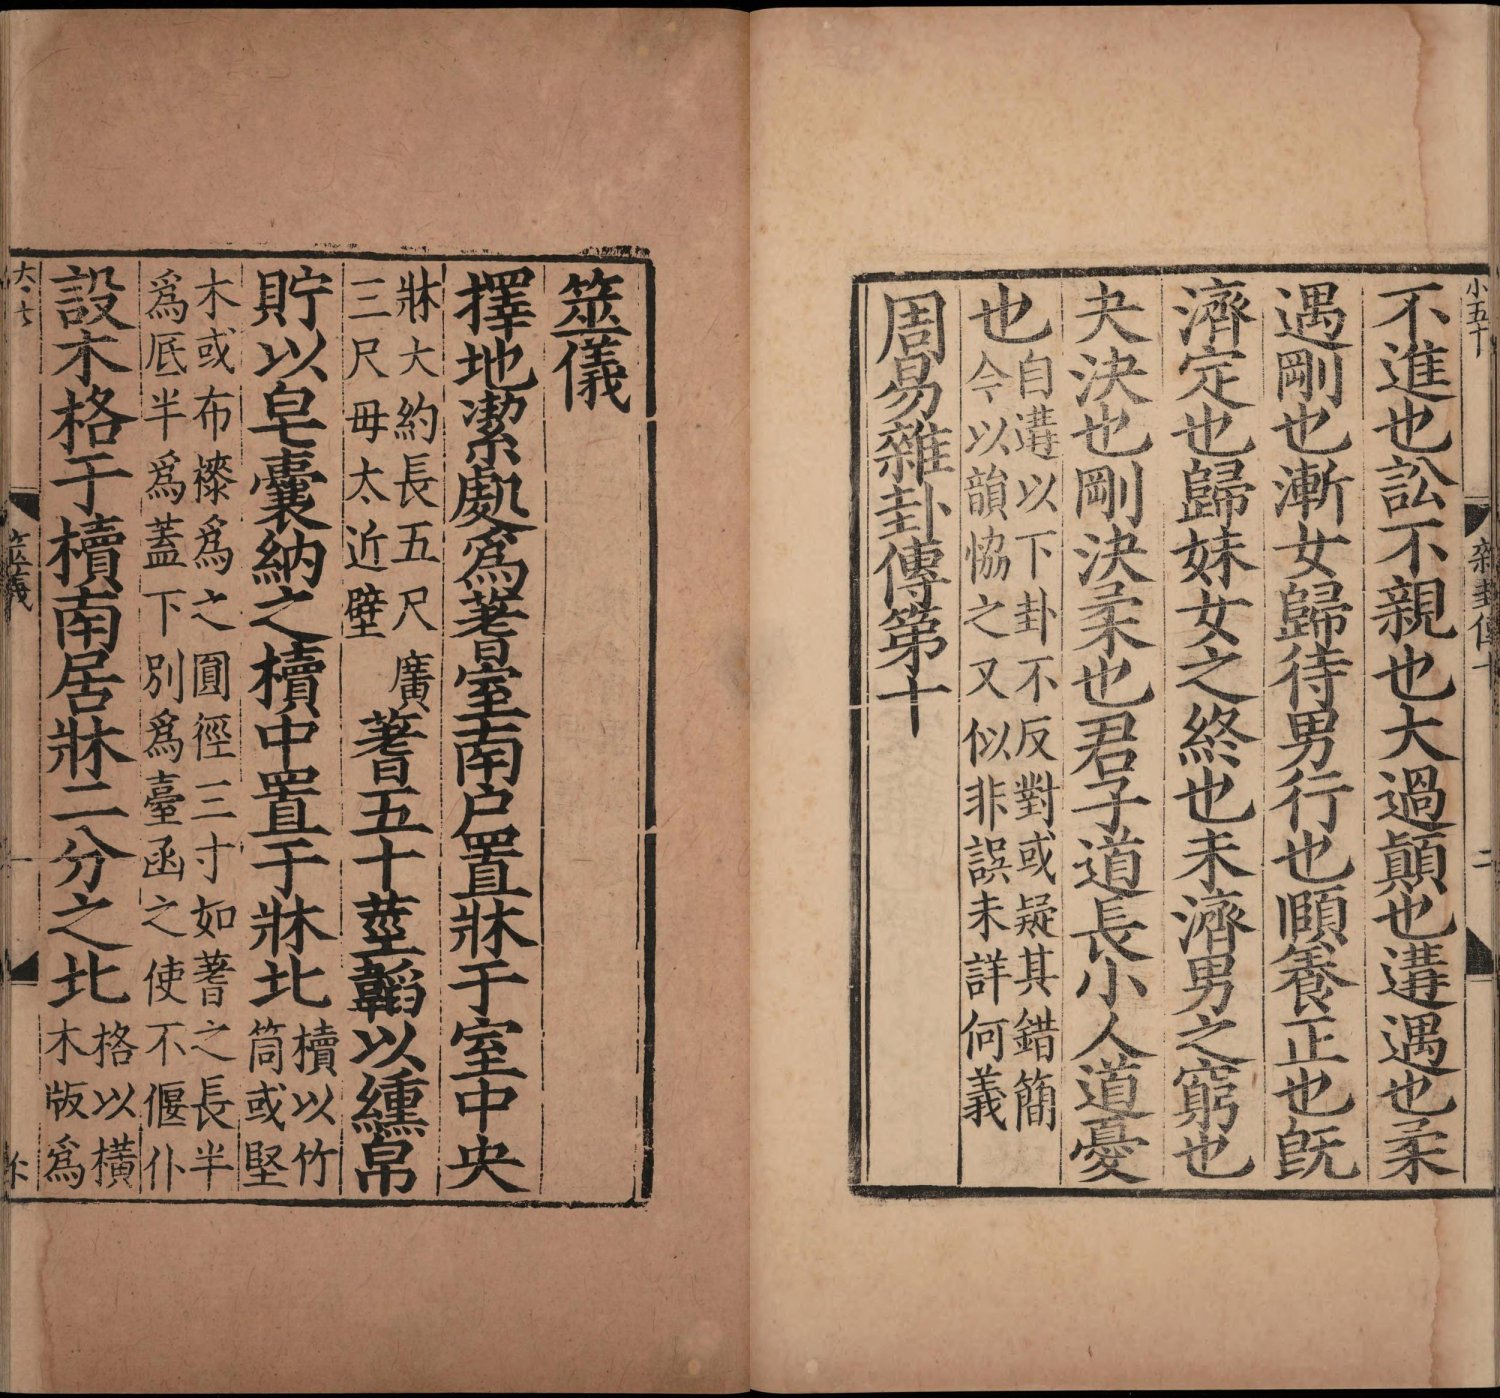 小五十
雜卦傳十
二
不進也訟不親也大過顛也遘遇也柔
遇剛也漸女歸待男行也頤養正也旣
濟定也歸妹女之終也未濟男之窮也
夬決也剛決柔也君子道長小人道憂
也
自遘以下卦不反對或疑其錯簡
今以韻恊之又似非誤未詳何義
周易雜卦傳第十
筮儀
擇地潔處爲蓍室南户置牀于室中央
牀大約長五尺廣
三尺毋太近壁
蓍五十莖韜以纁帛
貯以皂囊納之櫝中置于牀北
櫝以竹
筒或堅
木或布㯃爲之圓徑三寸如蓍之長半
爲底半爲蓋下別爲臺函之使不偃仆
設木格于櫝南居牀二分之北
格以橫
木版爲
筮儀
一